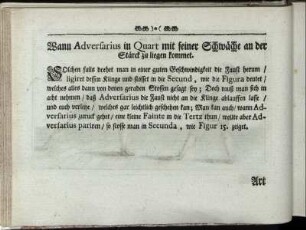 Wann Adversarius in Quart mit seiner Schwäche an der
Stärck zu liegen kommet.
Solchen falls drehet man in einer guten Geschwindigkeit die Faust herum /
ligiret dessen Klinge und stosset in die Secund, wie die Figura deutet /
welches alles dann von denen geraden Stossen gesagt sey; Doch muß man sich in
acht nehmen / daß Adversarius die Faust nicht an die Klinge ablauffen lasse /
und nach verletze / welches gar leichtlich geschehen kan; Man kan auch / wann Ad-
versarius zuruck gehet / eine kleine Fainte in die Tertz thun / wolte aber Ad-
versarius pariren / so stosse man in Secunda, wie Figur 15. zeiget.
Art